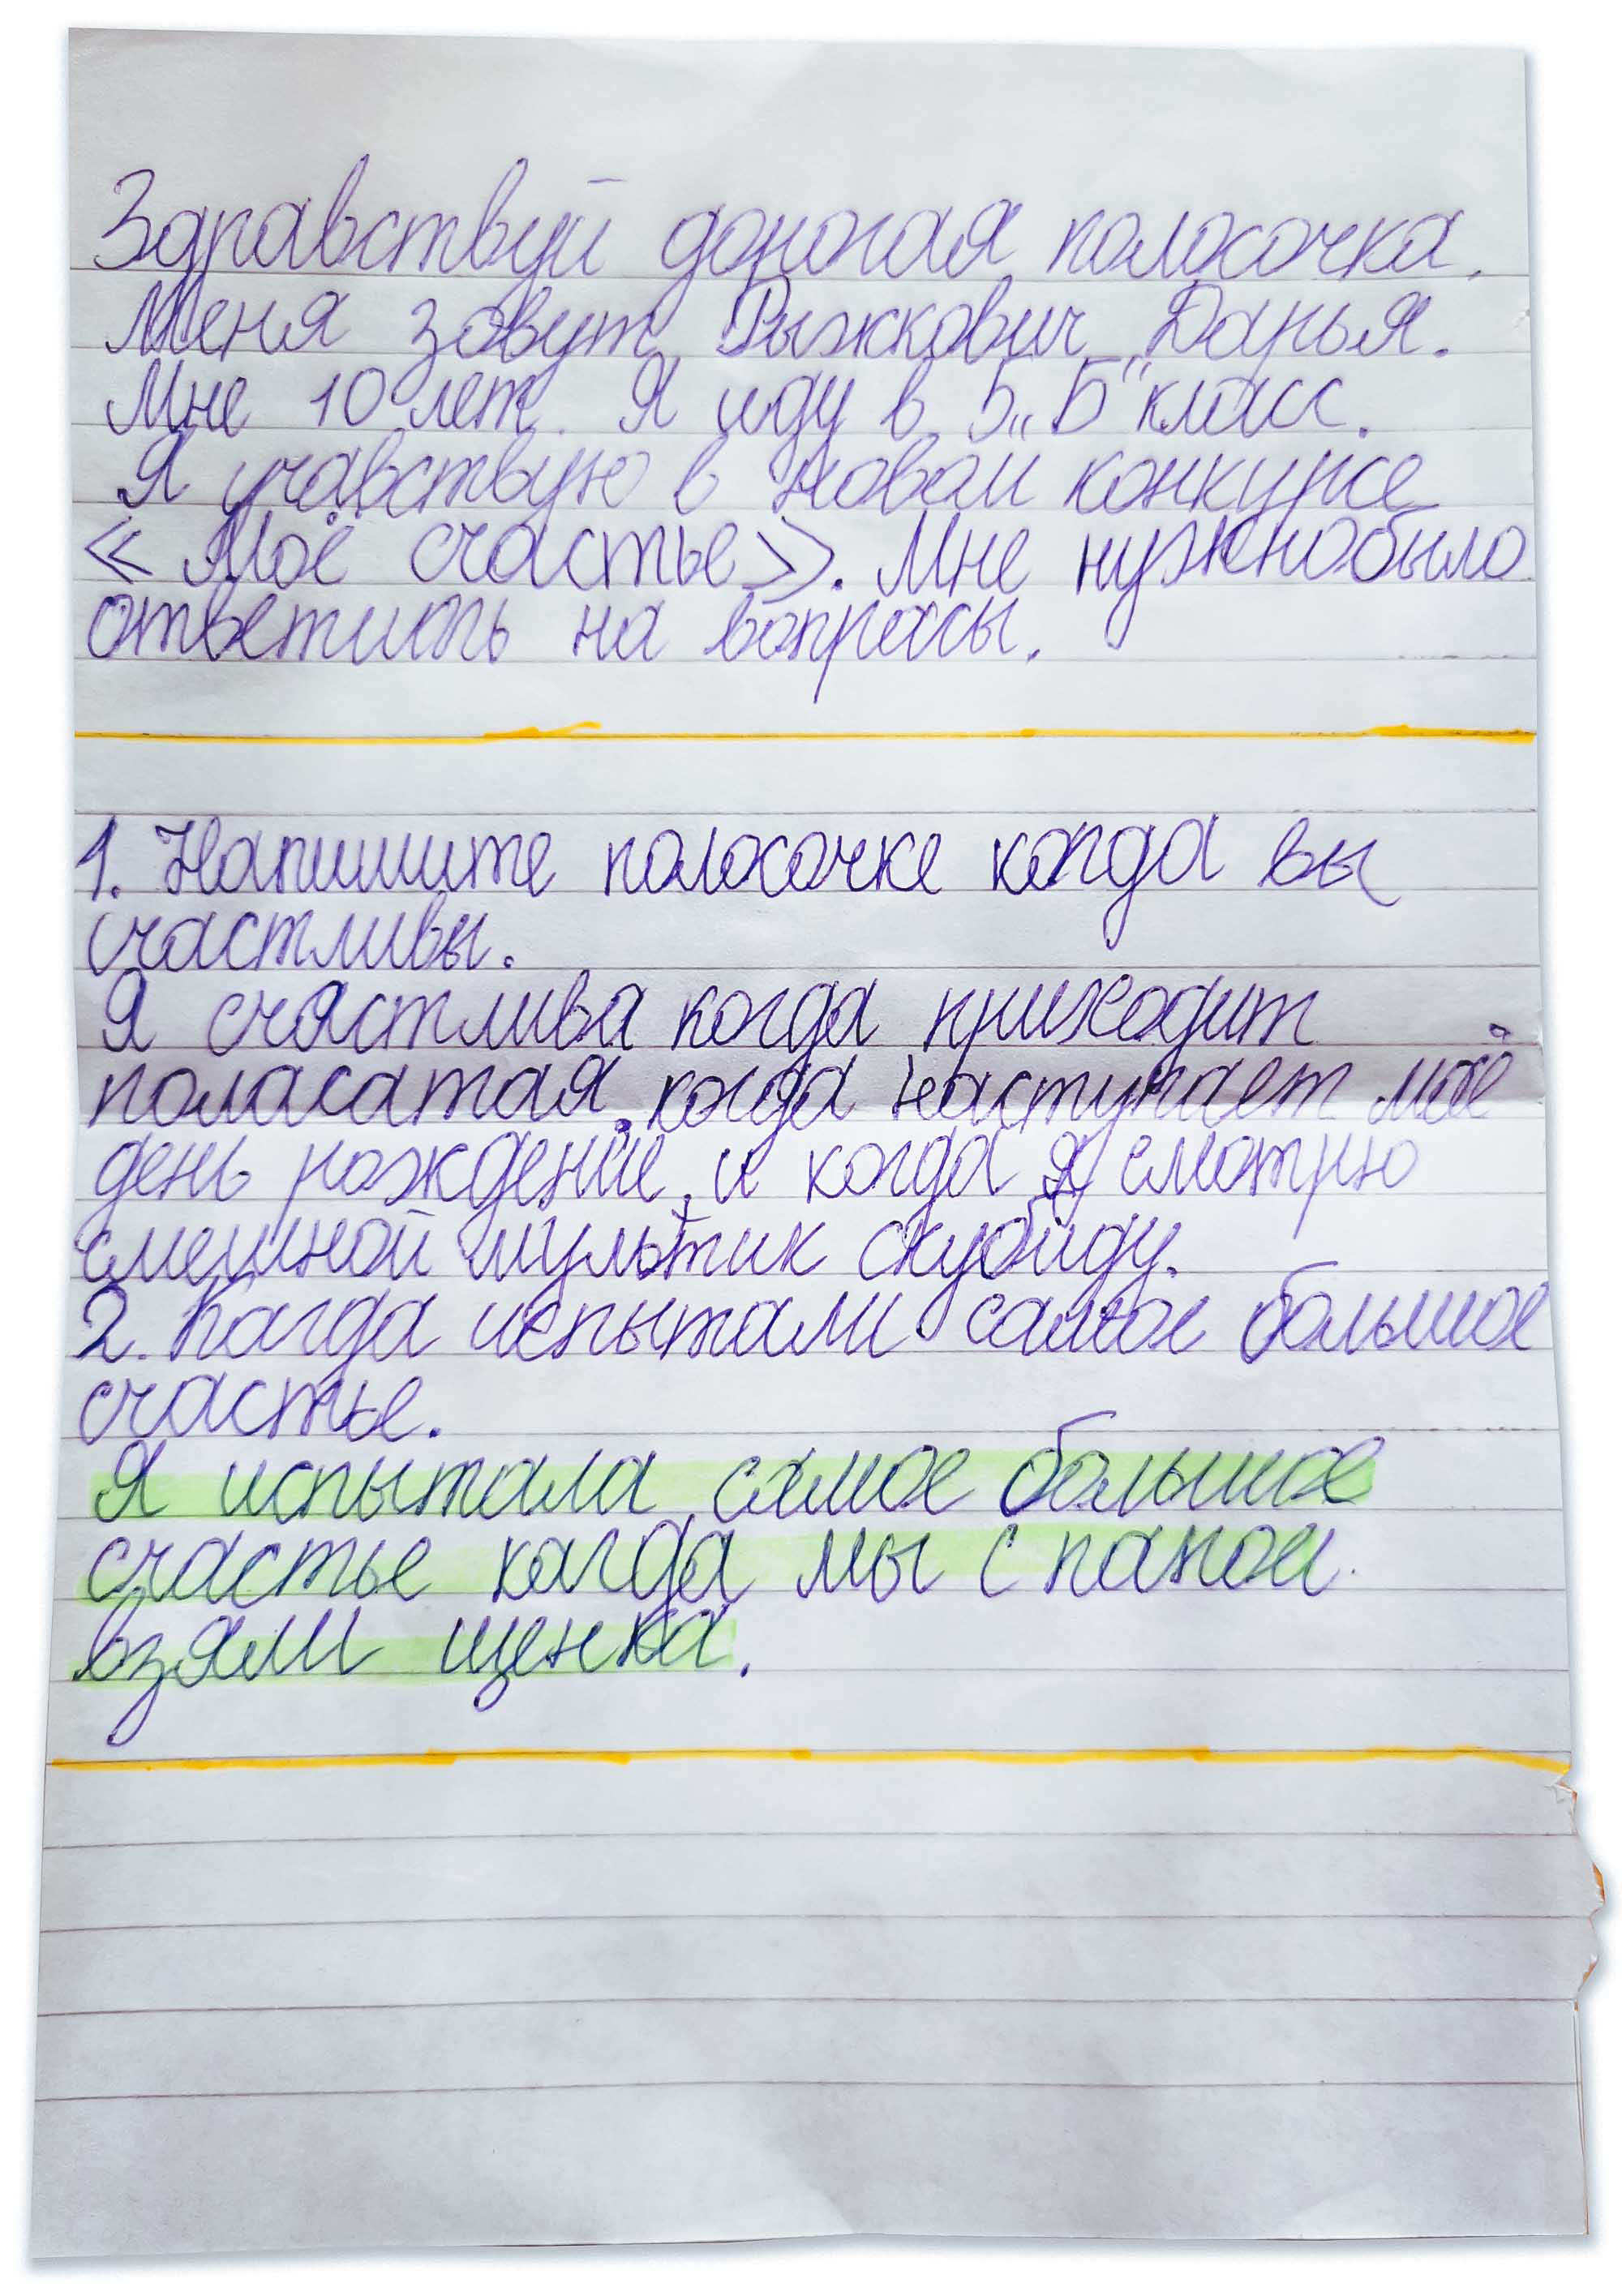 Здравствуй дорогая полосочка.
Меня зовут Рыжкович Дарья.
Мне 10 лет. Я иду в 5 „Б“ класс.
Я учавствую в новом конкурсе
« Моё счастье». Мне нужнобыло
ответить на вопросы.
1. Напишите полосочке когда вы
счастливы.
Я счастлива когда приходит
поласатая, когда наступает моё
день рождение, и когда я смотрю
смешной мультик скубиду.
2. Кагда испытали самое большое
счастье.
Я испытала самое большое
счастье кагда мы с папой
взяли щенка.